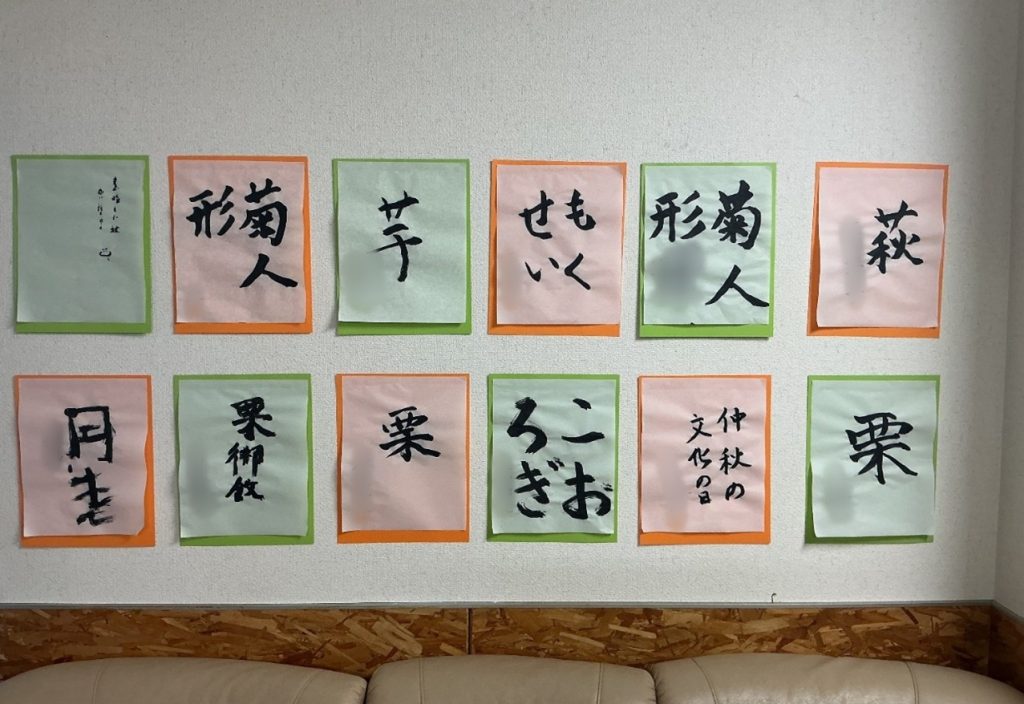 菊人
形
芋
もく
せい
菊人
形
萩
栗御飯
栗
こお
ろぎ
仲秋の
文化の日
栗